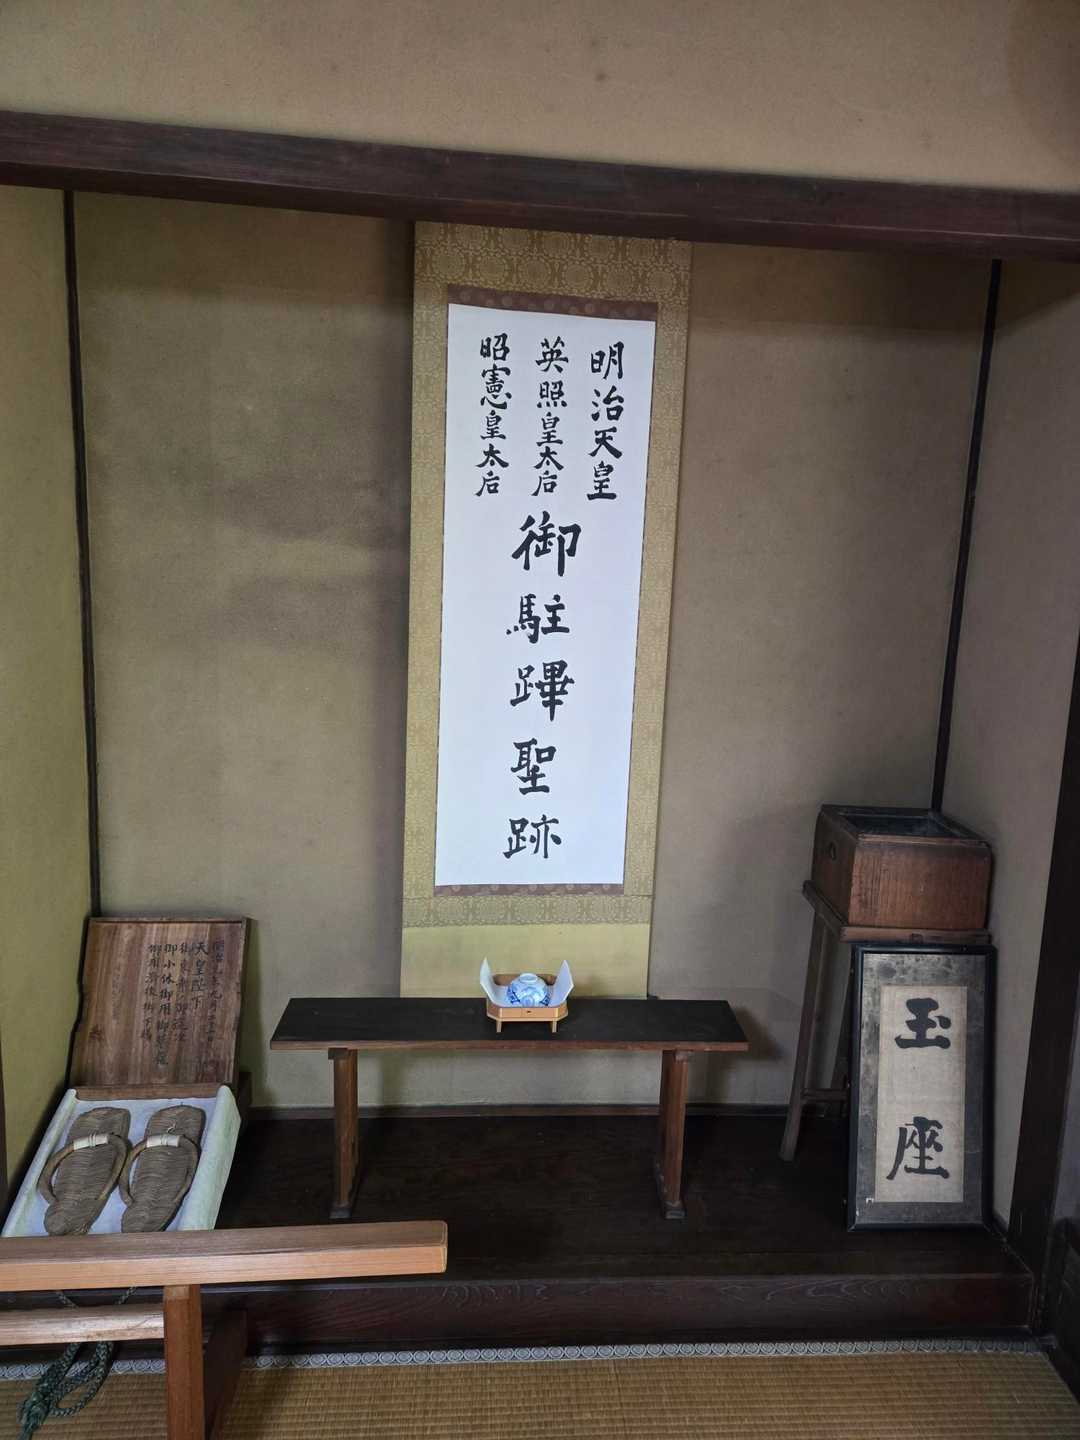 明治天皇
英照皇太后
昭憲皇太后
御駐蹕聖跡
玉座
天皇陛下
御小休御用御草履